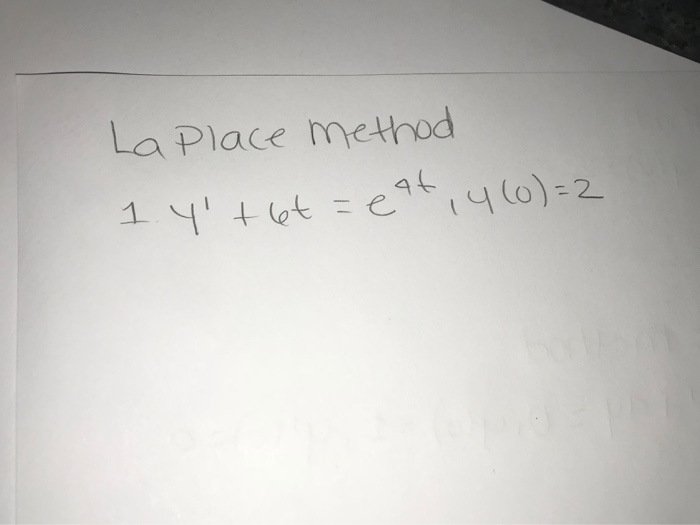 La Place method
1. y' + 6t = e^4t, y(0)=2